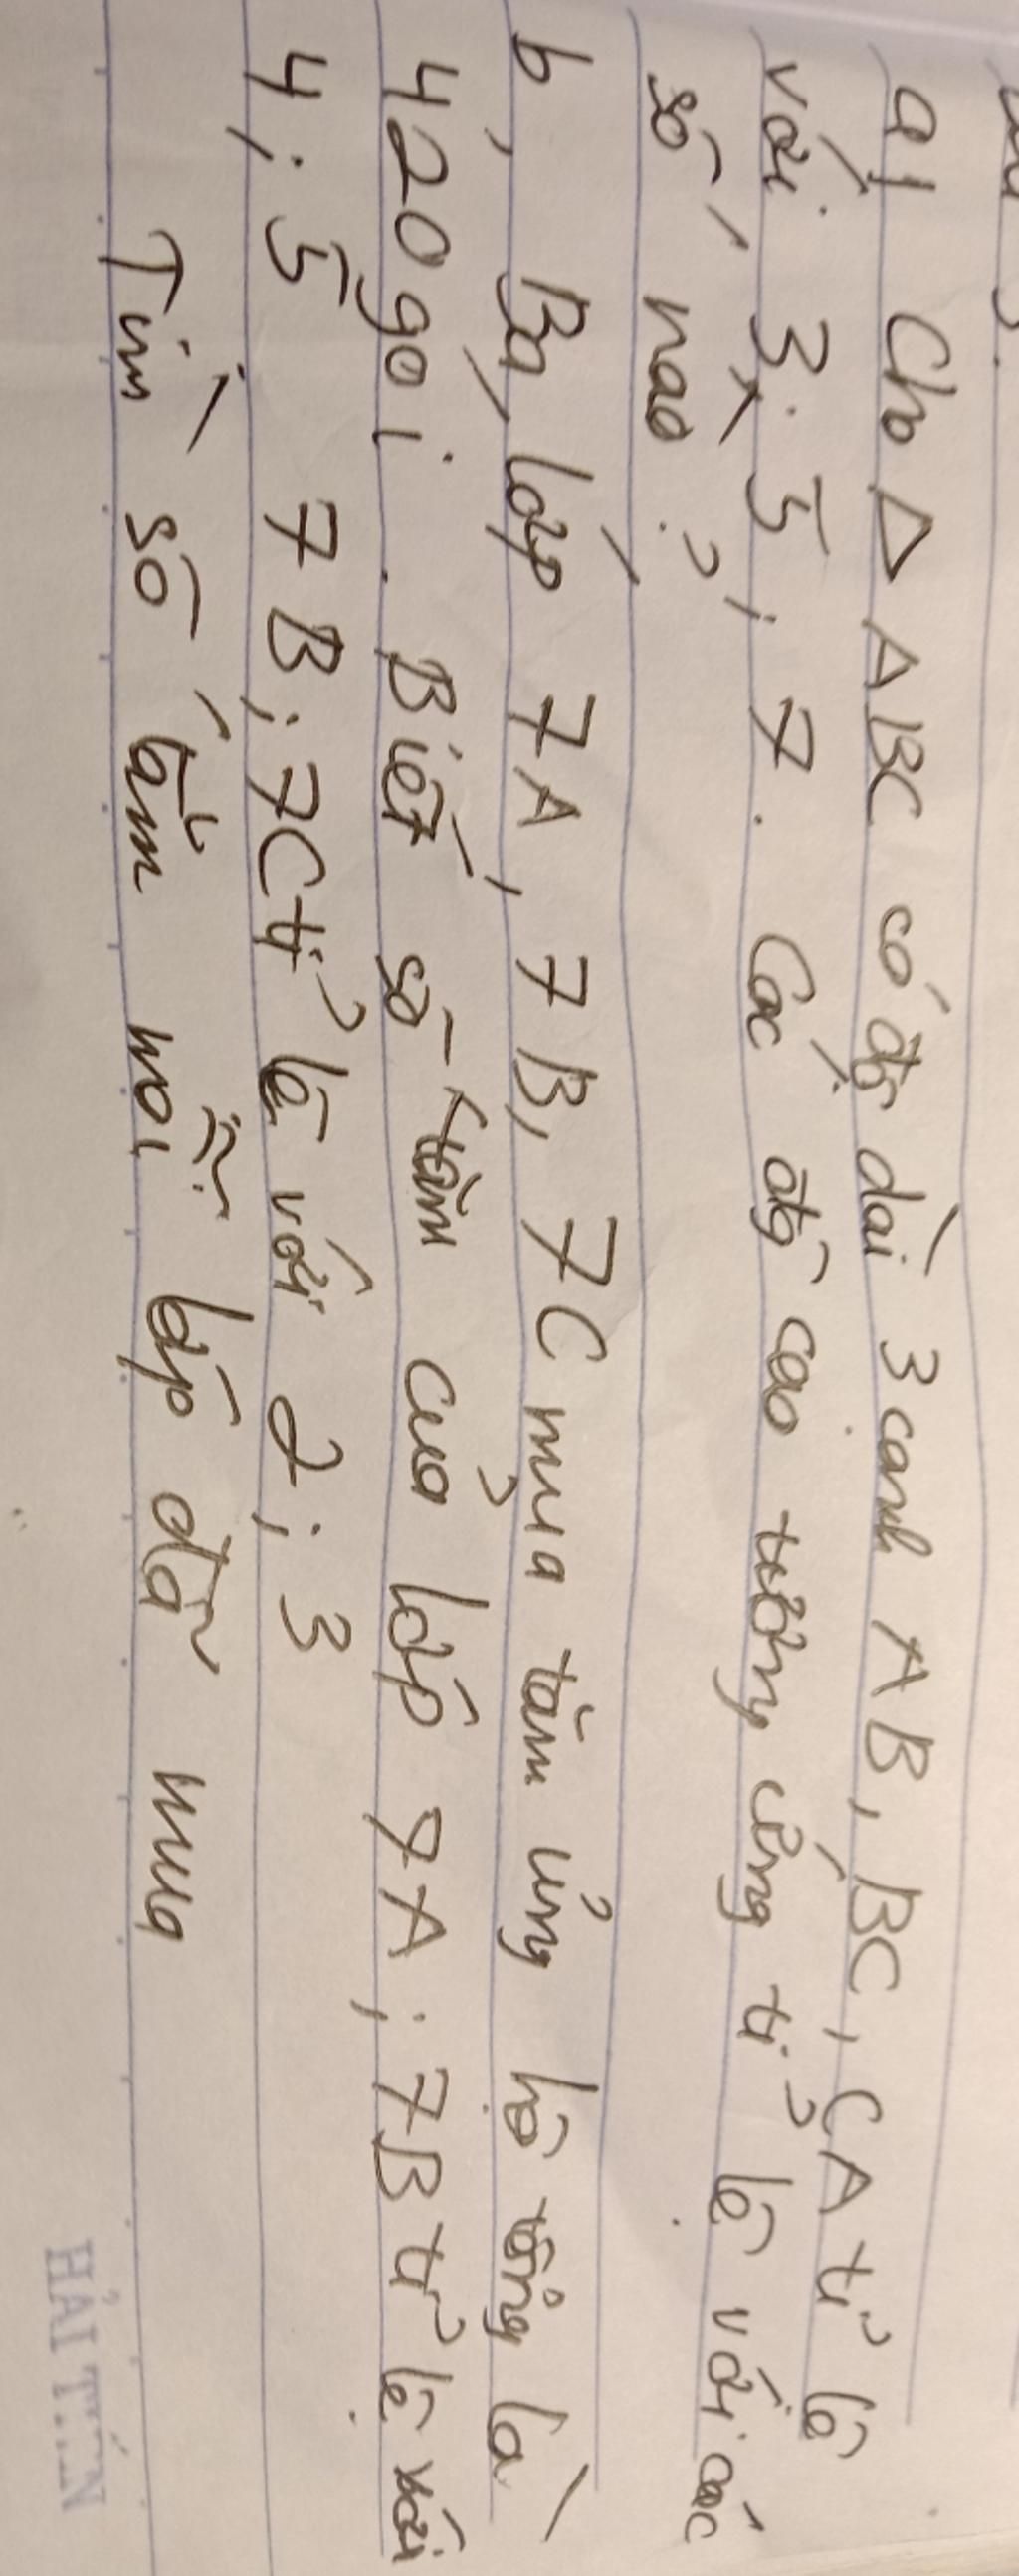 a, Cho Δ ABC có độ dài 3 cạnh AB, BC, CA tỉ lệ
với 3; 5; 7. Các độ cao tương ứng tỉ lệ với các
số nào?
b, Ba lớp 7A, 7B, 7C mua tăm ủng hộ tổng là
420 gói. Biết số tăm của lớp 7A; 7B tỉ lệ với
4; 5 7B; 7C tỉ lệ với 2; 3
Tìm số tăm mỗi lớp đã mua